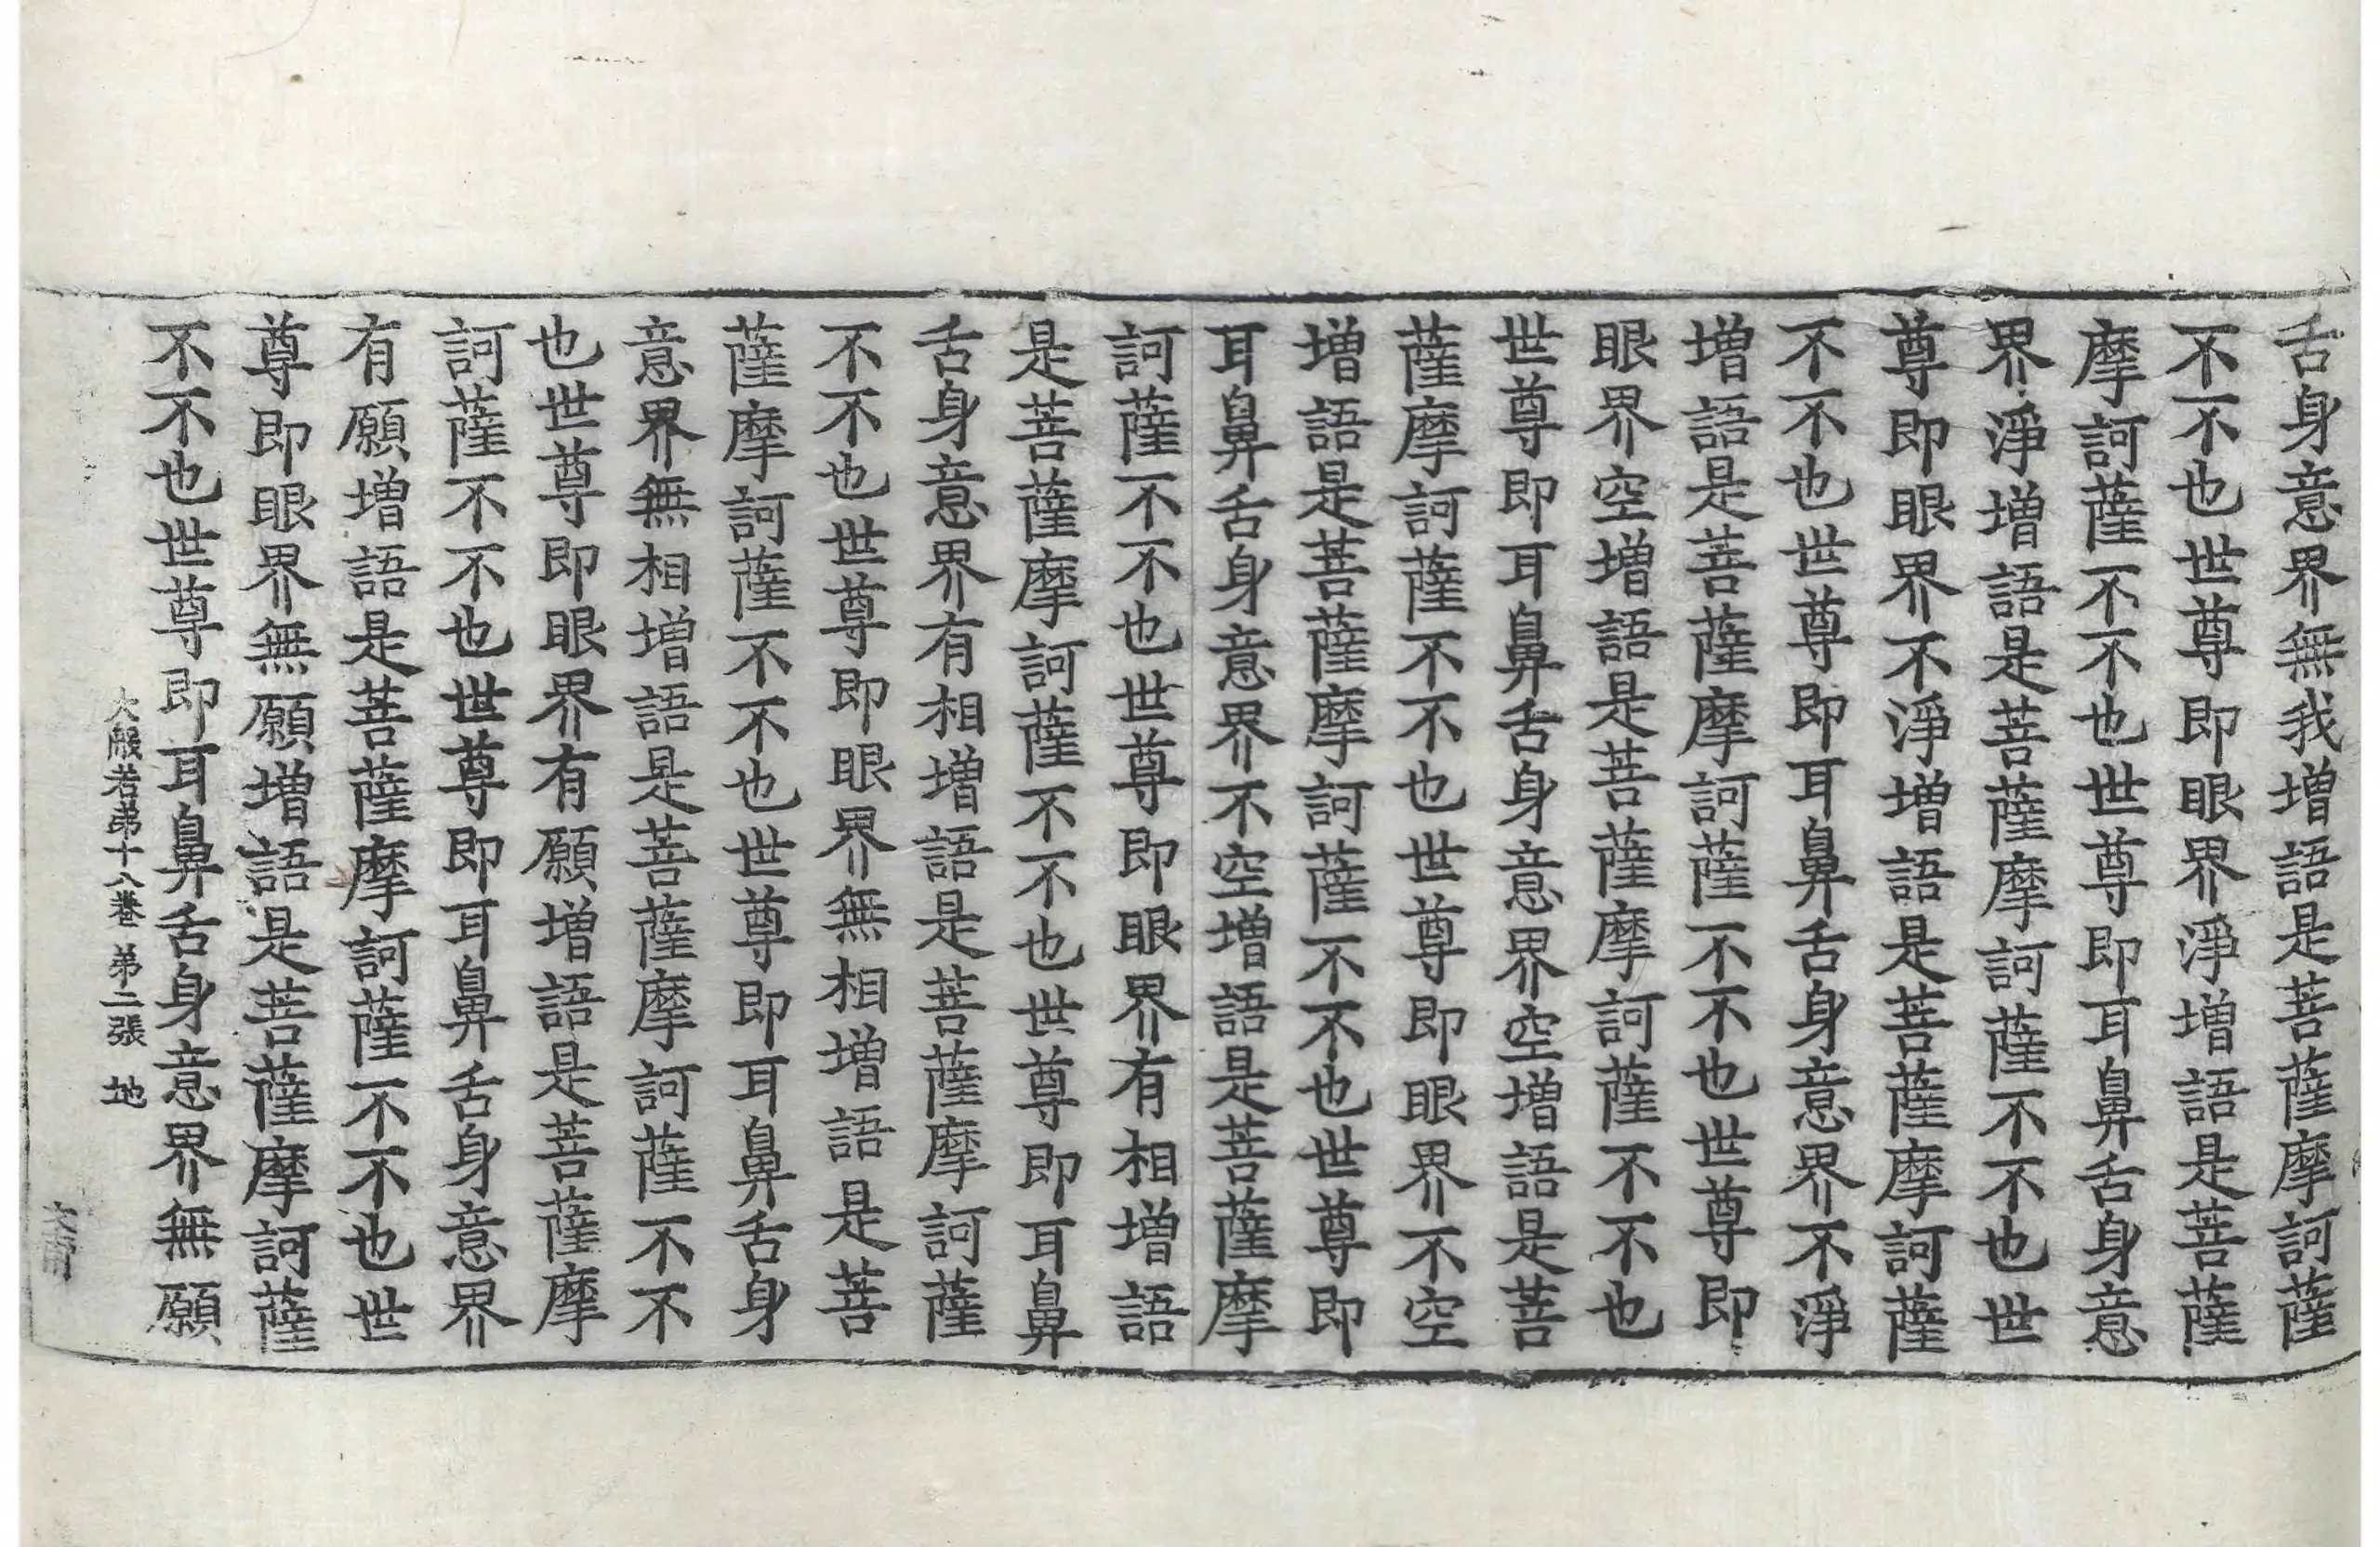 舌身意界無我増語是菩薩摩訶薩
不不也世尊即眼界淨増語是菩薩
摩訶薩不不也世尊即耳鼻舌身意
界淨増語是菩薩摩訶薩不不也世
尊即眼界不淨増語是菩薩摩訶薩
不不也世尊即耳鼻舌身意界不淨
増語是菩薩摩訶薩不不也世尊即
眼界空増語是菩薩摩訶薩不不也
世尊即耳鼻舌身意界空増語是菩
薩摩訶薩不不也世尊即眼界不空
増語是菩薩摩訶薩不不也世尊即
耳鼻舌身意界不空増語是菩薩摩
訶薩不不也世尊即眼界有相増語
是菩薩摩訶薩不不也世尊即耳鼻
舌身意界有相増語是菩薩摩訶薩
不不也世尊即眼界無相増語是菩
薩摩訶薩不不也世尊即耳鼻舌身
意界無相増語是菩薩摩訶薩不不
也世尊即眼界有願増語是菩薩摩
訶薩不不也世尊即耳鼻舌身意界
有願増語是菩薩摩訶薩不不也世
尊即眼界無願増語是菩薩摩訶薩
不不也世尊即耳鼻舌身意界無願
大般若弟十八卷 弟二張 地